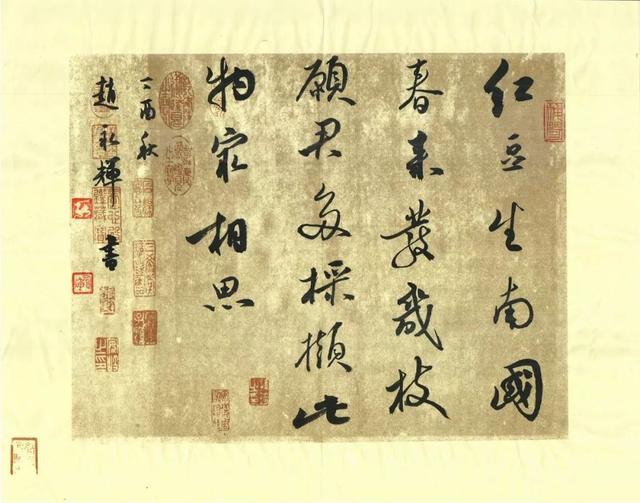 红豆生南國
春来發幾枝
願君多採擷此
物最相思
丁酉秋
趙永輝書